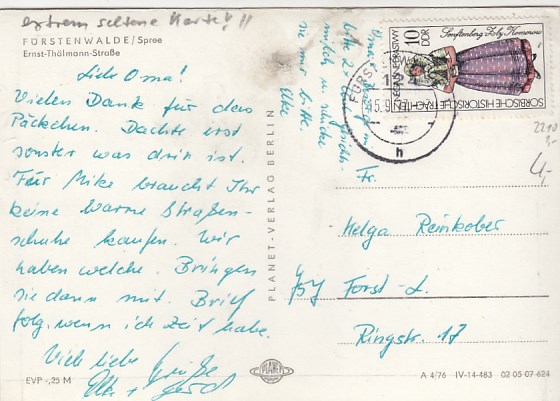 extrem seltene Karte! !!
FÜRSTENWALDE/Spree
Ernst-Thälmann-Straße
Liebe Oma!
Vielen Dank für das
Päckchen. Dachte erst
sonster was drin ist.
Für Mike braucht Ihr
keine warme Straßen-
schuhe kaufen. Wir
haben welche. Bringen
sie dann mit. Brief
folg. wenn ich Zeit habe.
Viele liebe Grüße
EVP -,25 M
PLANET-VERLAG BERLIN
PLANET
Oma
bitte 2x
milch u. schicke
sie mir bitte.
Elke
Senftenberg Zły Komorow
10
DDR
SORBISCHE HISTORISCHE TRACHTEN
FÜRST
15.9
h
2210
4,-
Fr.
Helga Reinkober
Forst - L.
Ringstr. 17
A 4/76 IV-14-483 02 05 07 624